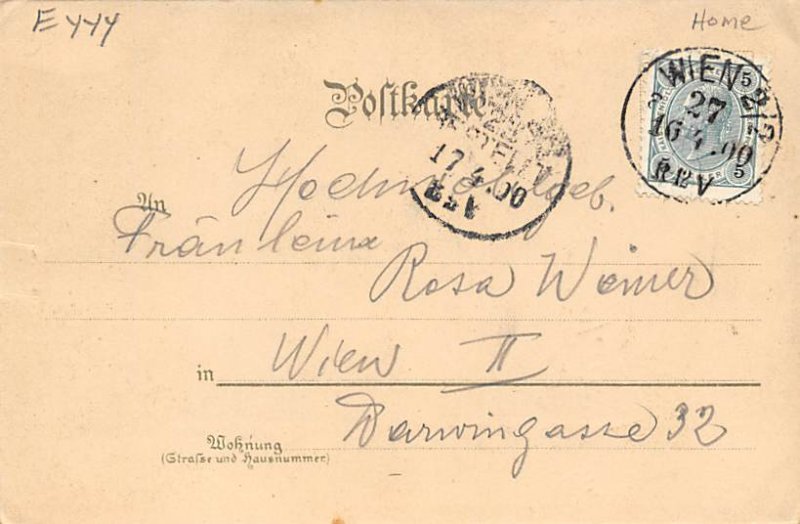 Eyyy
Home
Postkarte
WIEN 2/2
27
16 4.00
5
5 5
17.4.00
An Hochwohlgeb.
Fräuleine
Rosa Weiner
in Wien II
Wohnung
(Strasse und Hausnummer)
Darwingasse 32